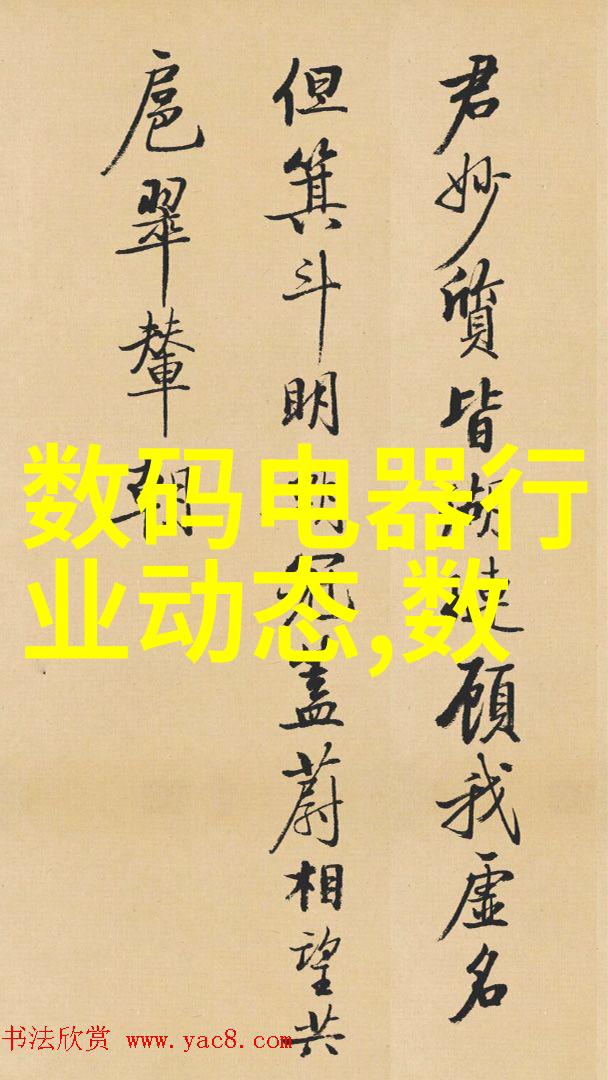 君妙質皆瑚璉顧我虚名
但箕斗明朝冠盖蔚相望共
扈翠輦朝
数码电器行
业动态,数
书法欣赏 www.yac8.com